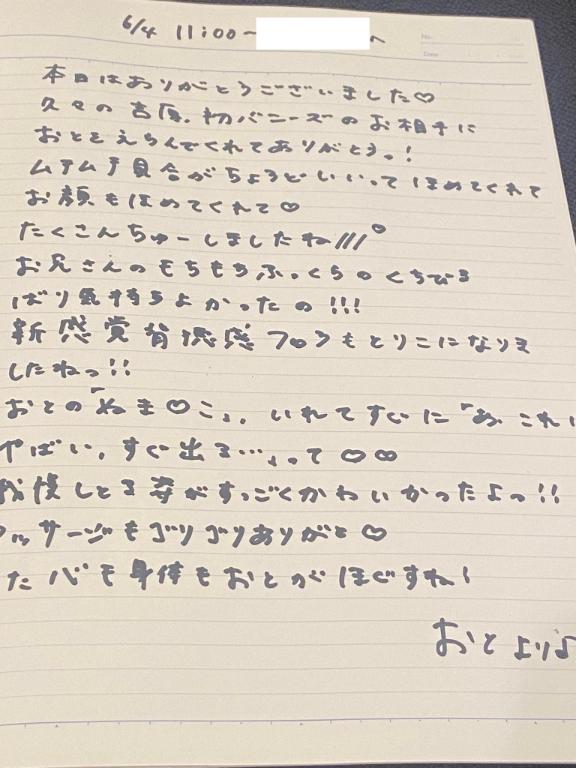 6/4 11:00~ へ
No.
Date
本日はありがとうございました♡
久々の吉原、初バニーズのお相手に
おとをえらんでくれてありがとうっ!
ムチムチ具合がちょうどいいってほめてくれて
お顔もほめてくれて♡
たくさんちゅーしましたね///
お兄さんのもちもちふっくらのくちびる
ばり気持ちよかったの!!!
新感覚背徳感フロうもとりこになりま
したねっ!!
おとの「ぬま♡こ」、いれてすぐに「あ、これ
やばい、すぐ出る…」って♡♡
我慢しとる姿がすっごくかわいかったよっ!!
マッサージもゴリゴリありがと♡
たバキ身体もおとがほぐすね!
おとより♪